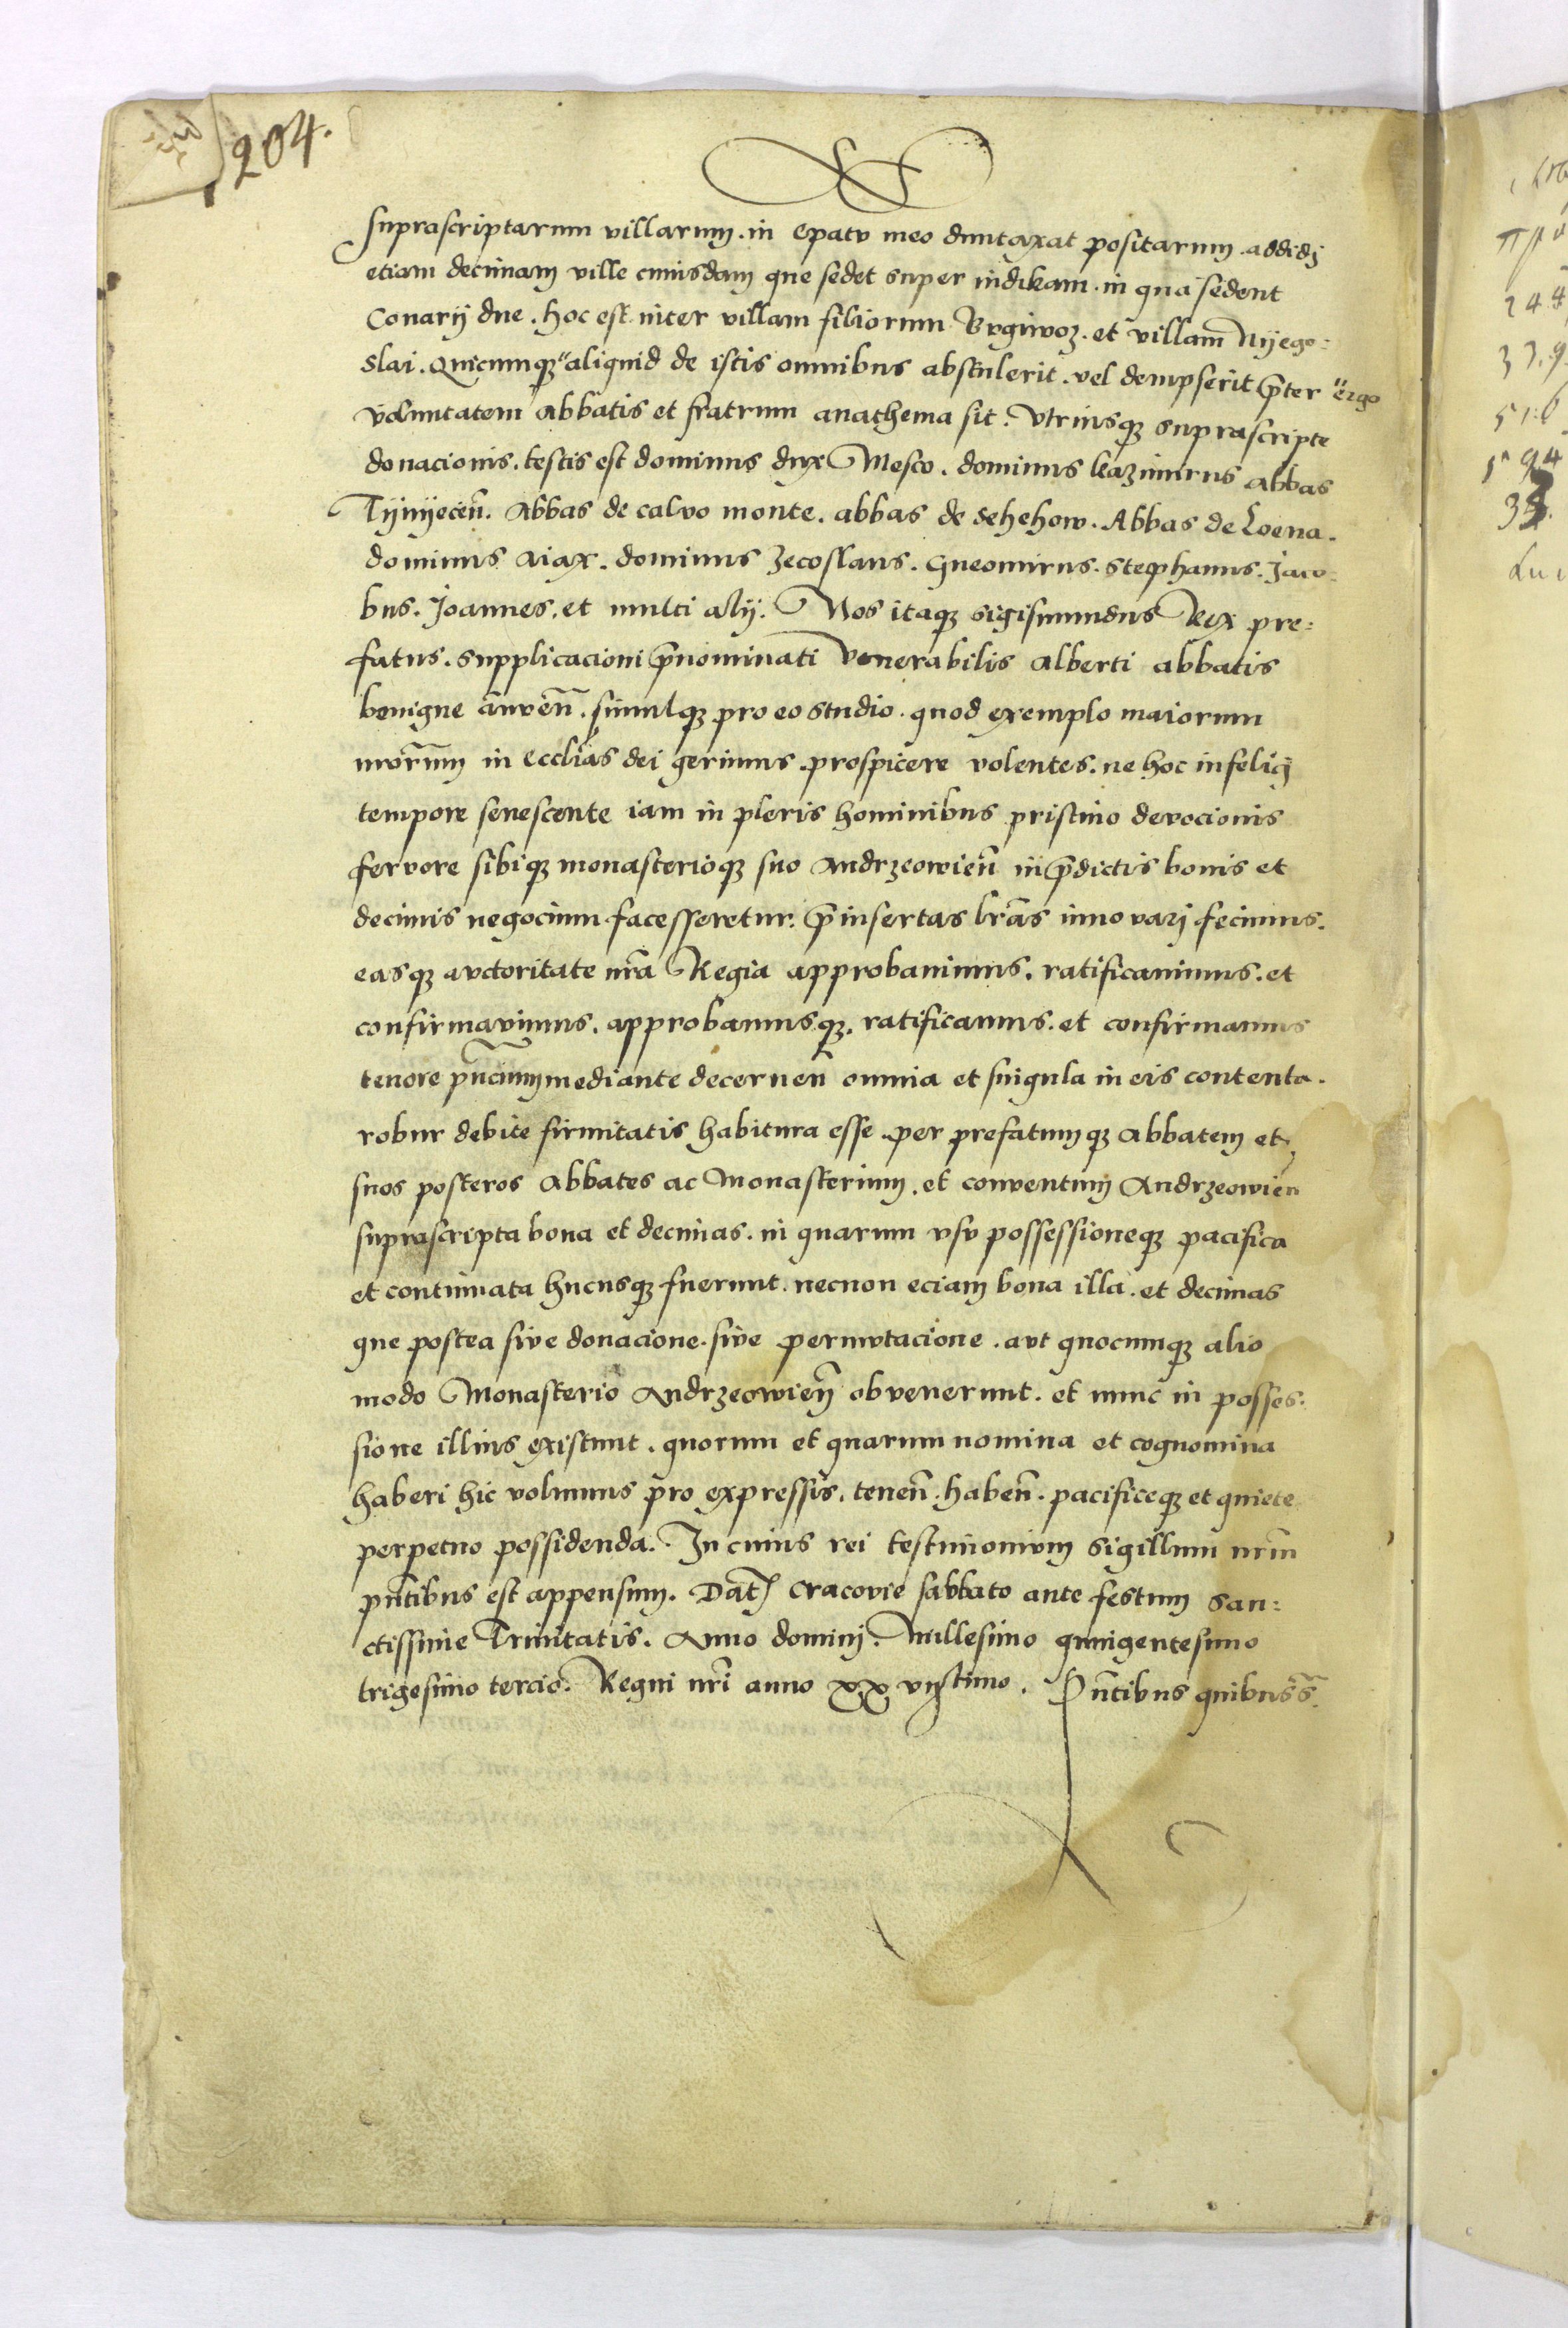 204.
suprascriptarum villarum. in epatu meo duntaxat positarum. addidj
etiam decimam ville cuiusdam que sedet super nidikam. in qua sedent
Conarij due. hoc est. inter villam filiorum Vrgiwoz. et villam Nyego:
slai. Quicumqꝫ "aliquid de istis omnibus abstulerit. vel dempserit p̄ter "ergo
voluntatem Abbatis et fratrum anathema sit. Vtriusqꝫ suprascripte
donacionis. testis est dominus dux Mesco. dominus kazimirus abbas
Tynyecen̄. Abbas de calvo monte. abbas de sehehow. Abbas de Loena.
dominus Aiax. dominus Zecoslaus. Gneomirus. Stephanus. Jaco:
bus. Joannes. et multi alij. Nos itaqꝫ Sigismundus Rex pre:
fatus. supplicacioni p̄nominati Venerabilis Alberti abbatis
benigne annuen̄. simulqꝫ pro eo studio. quod exemplo maiorum
nr̄orum in eccl̄ias dei gerimus. prospicere volentes. ne hoc infelicj
tempore senescente iam in pleris hominibus pristino devocionis
fervore sibiqꝫ monasterioqꝫ suo Andrzeowien̄ in p̄dictis bonis et
decimis negocium facesseretur. p̄insertas l̄ras innovarj fecimus.
easqꝫ auctoritate nr̄a Regia approbauimus. ratificauimus. et
confirmavimus. approbamusqꝫ. ratificamus. et confirmamus
tenore pn̄cium mediante decernen̄ omnia et singula in eis contenta.
robur debite firmitatis habitura esse. per prefatumqꝫ Abbatem et
suos posteros Abbates ac Monasterium. et conventum Andrzeowien
suprascripta bona et decimas. in quarum usu possessioneqꝫ pacifica
et continuata hucusqꝫ fuerunt. necnon eciam bona illa. et decimas
que postea sive donacione. sive permutacione. aut quocumqꝫ alio
modo Monasterio Andrzeowien̄ obvenerunt. et nunc in posses:
sione illius existunt. quorum et quarum nomina et cognomina
haberi hic volumus pro expressis. tenen̄. haben̄. pacificeqꝫ et quiete
perpetuo possidenda. In cuius rei testimonium Sigillum nr̄m
pn̄tibus est appensum. Dat̄ Cracovie sabbato ante festum San:
ctissime Trinitatis. Anno dominj. Millesimo quingentesimo
trigesimo tercio. Regni nr̄i anno xx vijstimo. Pn̄tibus quibuss̄.